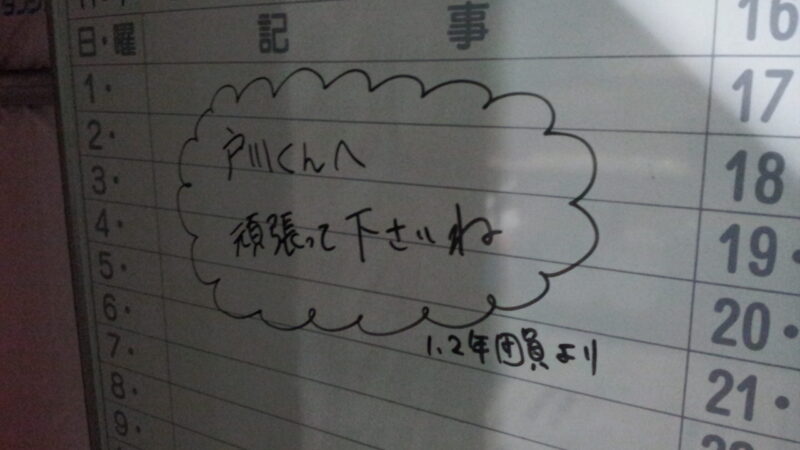 日・曜 記事
16
1・
17
2・
戸川くんへ
3・
18
4・
頑張って下さいね
19・
5・
6・
20・
1.2年団員より
7・
21・
8・
9・